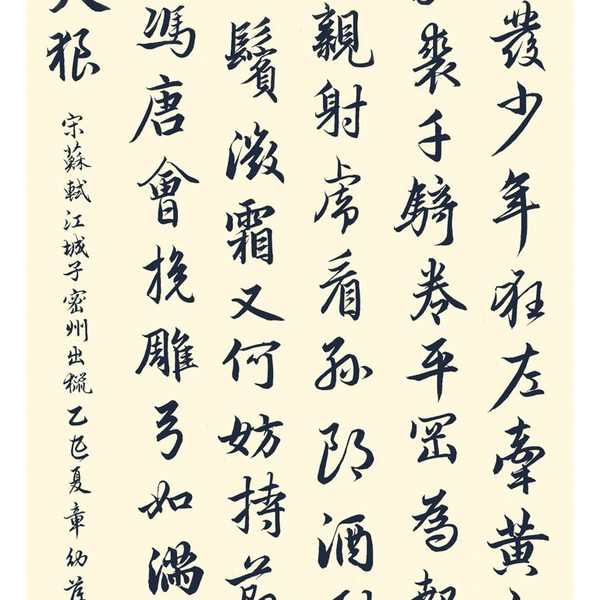 發少年狂左牽黃
裘千騎卷平岡為報
親射虎看孫郎酒
鬢微霜又何妨持節
馮唐會挽雕弓如滿
天狼
宋蘇軾江城子密州出獵乙巳夏章幼